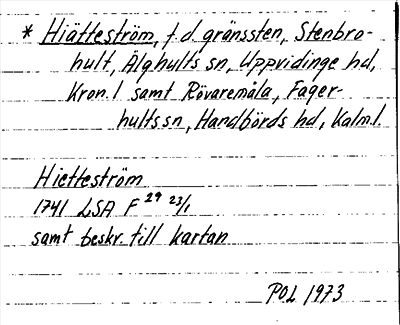 * Hiätteström, f.d. gränssten, Stenbro-
hult, Älghults sn, Uppvidinge hd,
Kron. l samt Rövaremåla, Fager-
hults sn, Handbörds hd, Kalm.l.
Hietteström
1741 LSA F 29 23/1
samt beskr. till kartan
POL 1973